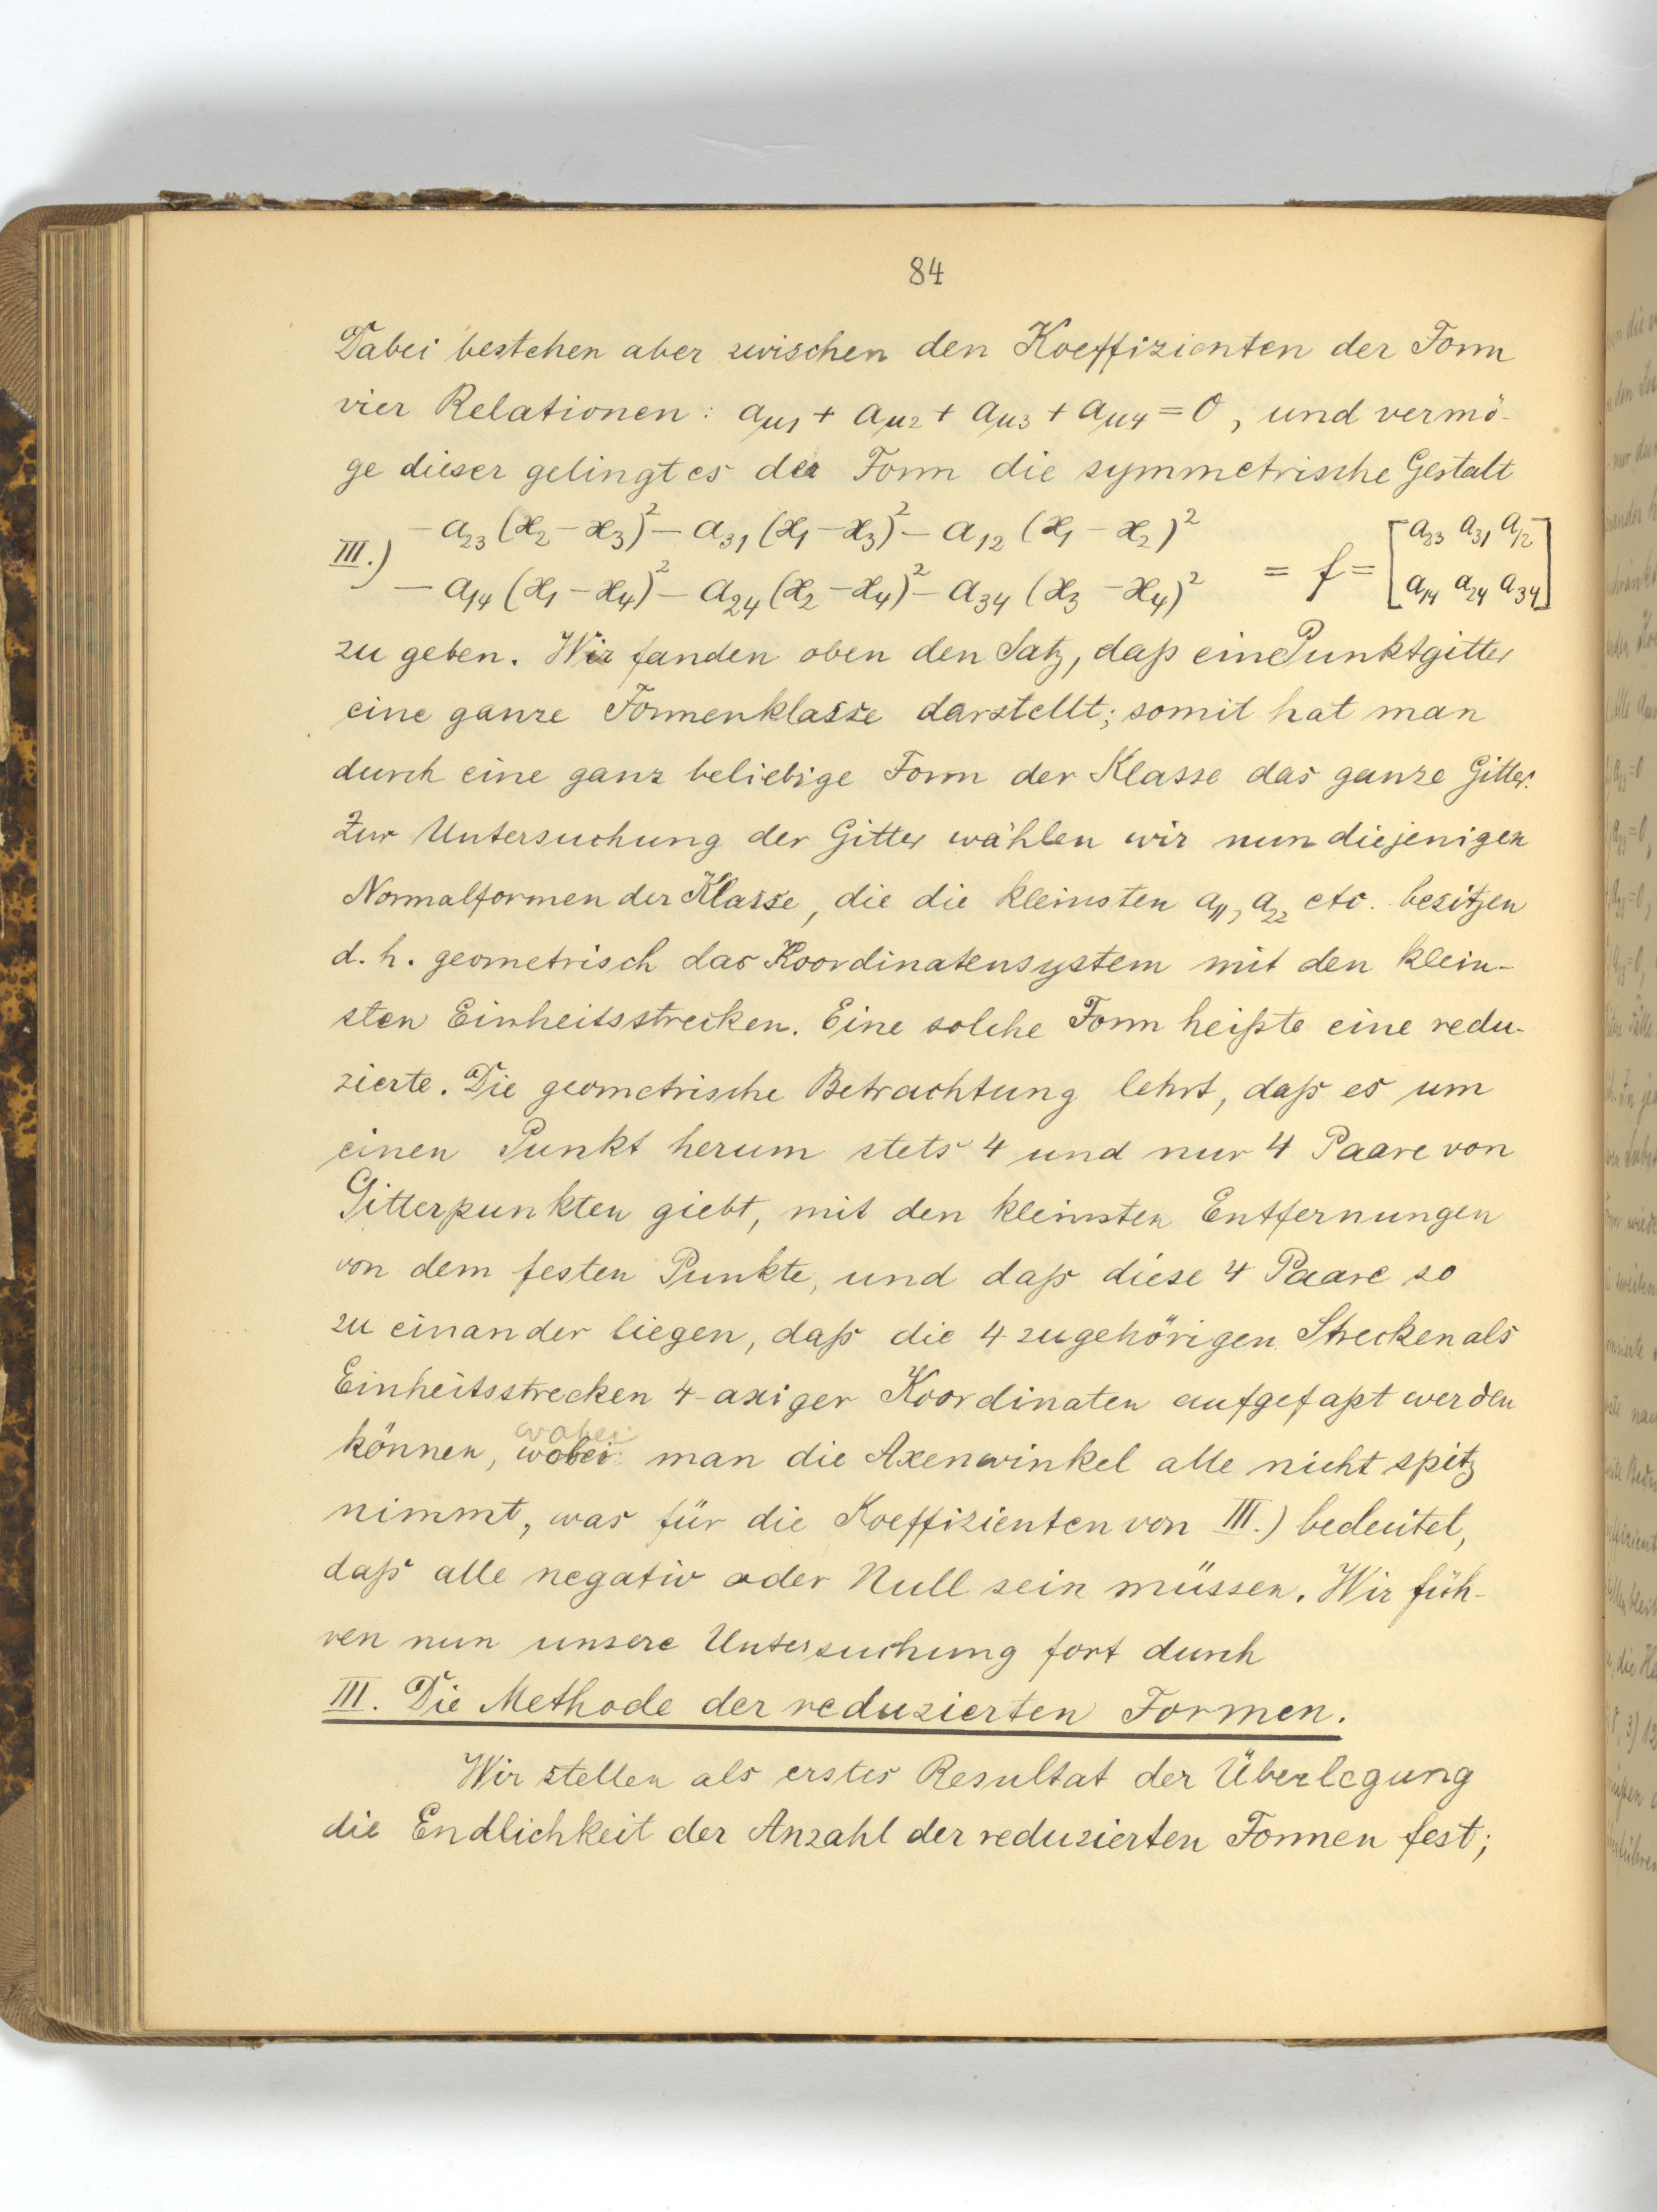 84
Dabei bestehen aber zwischen den Koeffizienten der Form
vier Relationen: aμ1 + aμ2 + aμ3 + aμ4 = 0, und vermö-
ge dieser gelingt es der Form die symmetrische Gestalt
III.) -a₂₃(x₂-x₃)² - a₃₁(x₁-x₃)² - a₁₂(x₁-x₂)²
- a₁₄(x₁-x₄)² - a₂₄(x₂-x₄)² - a₃₄(x₃-x₄)² = f = [a₂₃ a₃₁ a₁₂
a₁₄ a₂₄ a₃₄]
zu geben. Wir fanden oben den Satz, daß ein Punktgitter
eine ganze Formenklasse darstellt; somit hat man
durch eine ganz beliebige Form der Klasse das ganze Gitter.
Zur Untersuchung der Gitter wählen wir nun diejenigen
Normalformen der Klasse, die die kleinsten a₁₁, a₂₂ etc. besitzen
d. h. geometrisch das Koordinatensystem mit den klein-
sten Einheitsstrecken. Eine solche Form heißte eine redu-
zierte. Die geometrische Betrachtung lehrt, daß es um
einen Punkt herum stets 4 und nur 4 Paare von
Gitterpunkten giebt, mit den kleinsten Entfernungen
von dem festen Punkte, und daß diese 4 Paare so
zu einander liegen, daß die 4 zugehörigen Strecken als
Einheitsstrecken 4-axiger Koordinaten aufgefaßt werden
wobei
können, wobei man die Axenwinkel alle nicht spitz
nimmt, was für die Koeffizienten von III.) bedeutet,
daß alle negativ oder Null sein müssen. Wir füh-
ren nun unsere Untersuchung fort durch
III. Die Methode der reduzierten Formen.
Wir stellen als erstes Resultat der Überlegung
die Endlichkeit der Anzahl der reduzierten Formen fest;